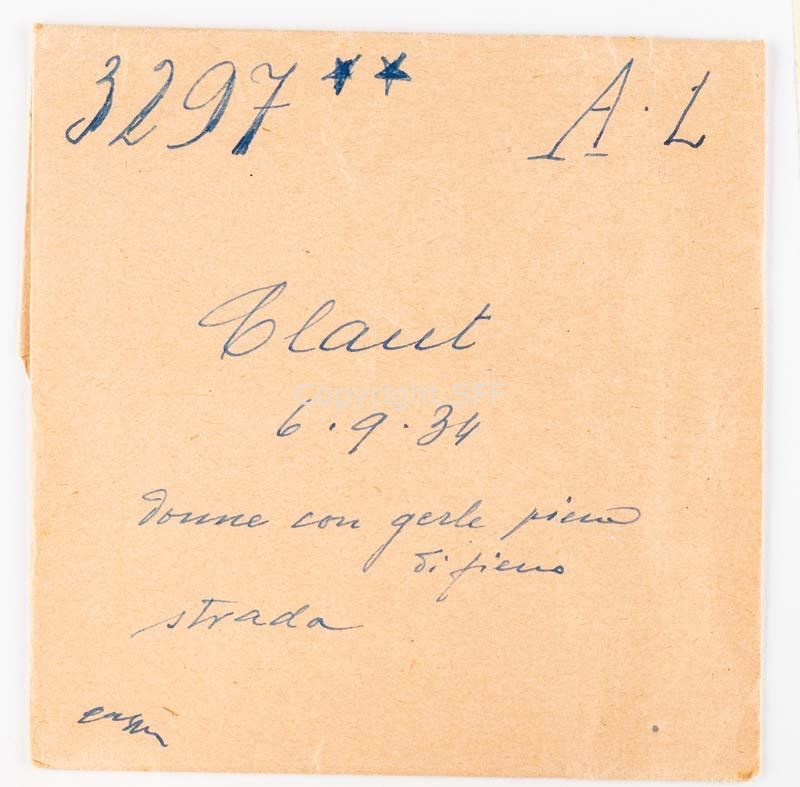 3297 ** A. L
Claut
Copyright SFF
6.9.34
donne con gerle piene
di fieno
strada